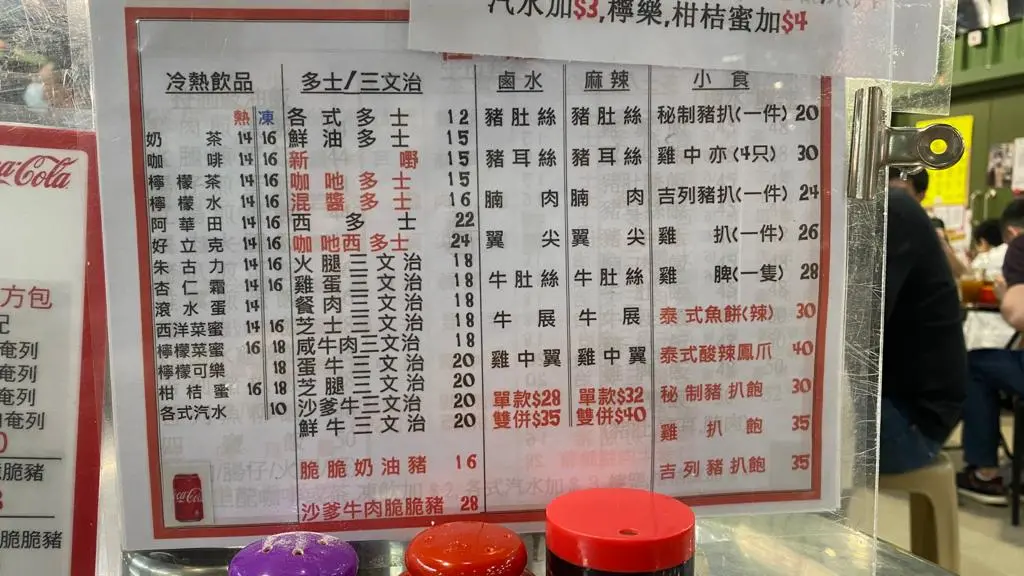 汽水加$3,檸樂,柑桔蜜加$4
Coca-Cola
方包
奄列
奄列
奄列
脆豬
脆脆豬
冷熱飲品
熱 凍
奶茶 14 16
咖啡 14 16
檸檬茶 14 16
檸檬水 14 16
阿華田 14 16
好立克 14 16
朱古力 14 16
杏仁霜 14 16
滾水蛋 14
西洋菜蜜 14 16
檸檬菜蜜 16 18
檸檬可樂 18
柑桔蜜 16 18
各式汽水 10
多士/三文治
各式多士 12
鮮油多士 15
新嘢 15
咖吔多士 15
混醬多士 16
西多士 22
咖吔西多士 24
火腿三文治 18
雞蛋三文治 18
餐肉三文治 18
芝士三文治 18
咸牛肉三文治 18
蛋牛三文治 20
芝腿三文治 20
沙爹牛三文治 20
鮮牛三文治 20
脆脆奶油豬 16
沙爹牛肉脆脆豬 28
鹵水
豬肚絲
豬耳絲
腩肉
翼尖
牛肚絲
牛展
雞中翼
單款$28
雙併$35
麻辣
豬肚絲
豬耳絲
腩肉
翼尖
牛肚絲
牛展
雞中翼
單款$32
雙併$40
小食
秘制豬扒(一件) 20
雞中亦(4只) 30
吉列豬扒(一件) 24
雞扒(一件) 26
雞脾(一隻) 28
泰式魚餅(辣) 30
泰式酸辣鳳爪 40
秘制豬扒飽 30
雞扒飽 35
吉列豬扒飽 35